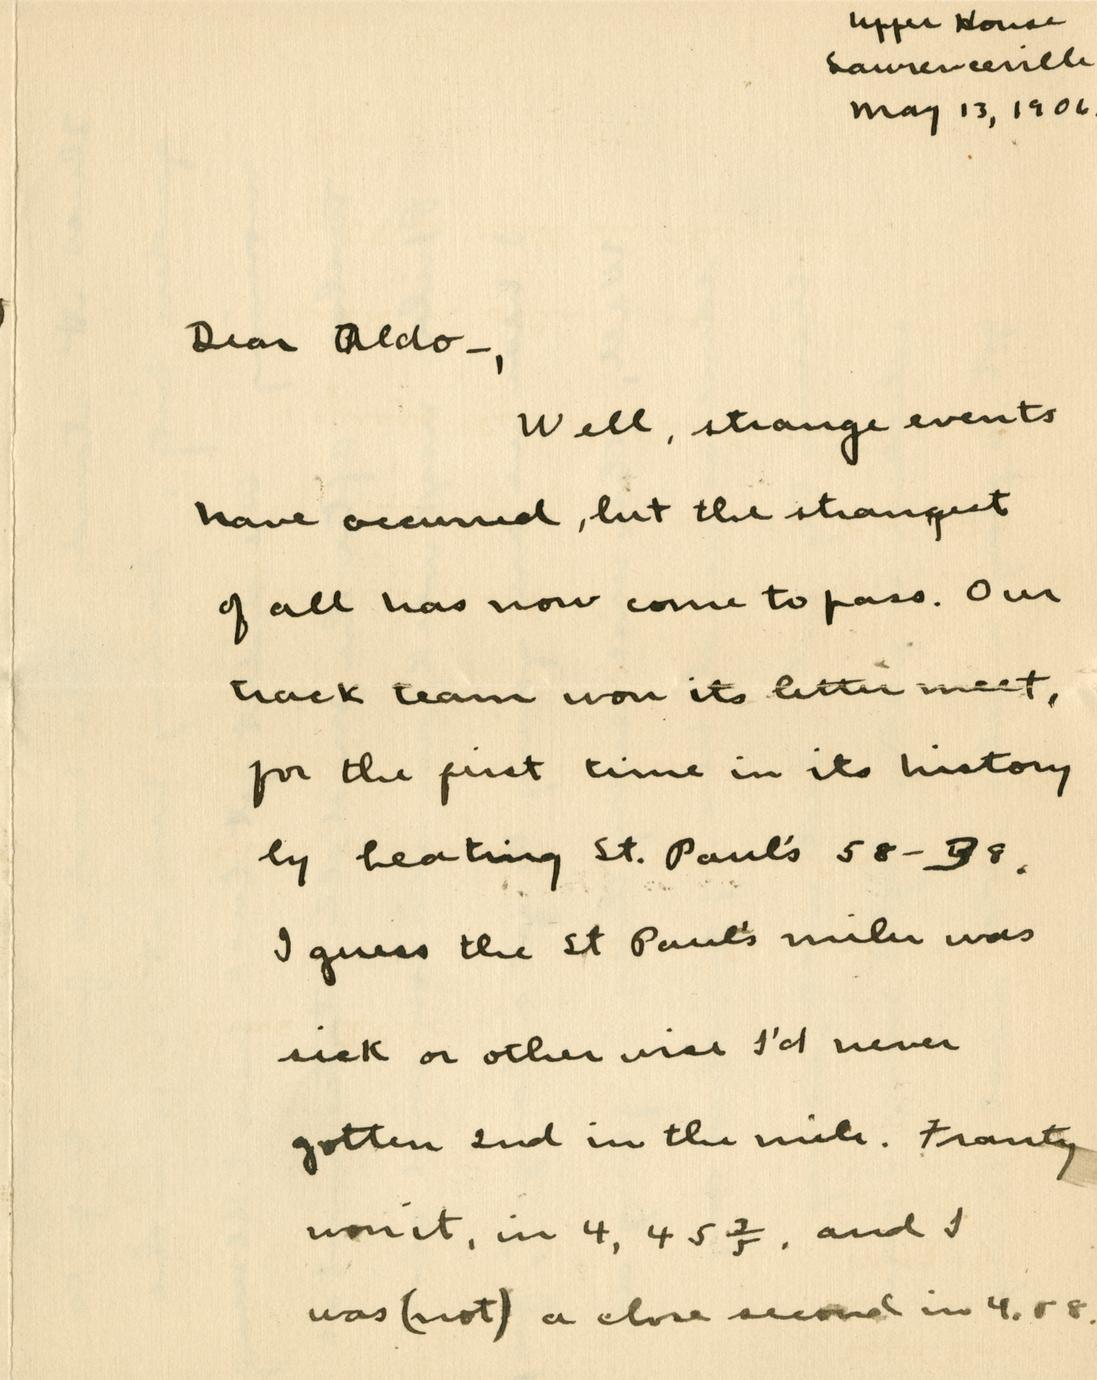 Upper House
Lawrenceville
May 13, 1906.
Dear Aldo—,
Well, strange events
have occurred, but the strangest
of all has now come to pass. Our
track team won its letter meet,
for the first time in its history
by beating St. Paul's 58-38.
I guess the St Paul's miler was
sick or other wise I'd never
gotten 2nd in the mile. Franty
won it, in 4, 45 2/5, and I
was (not) a close second in 4.58.